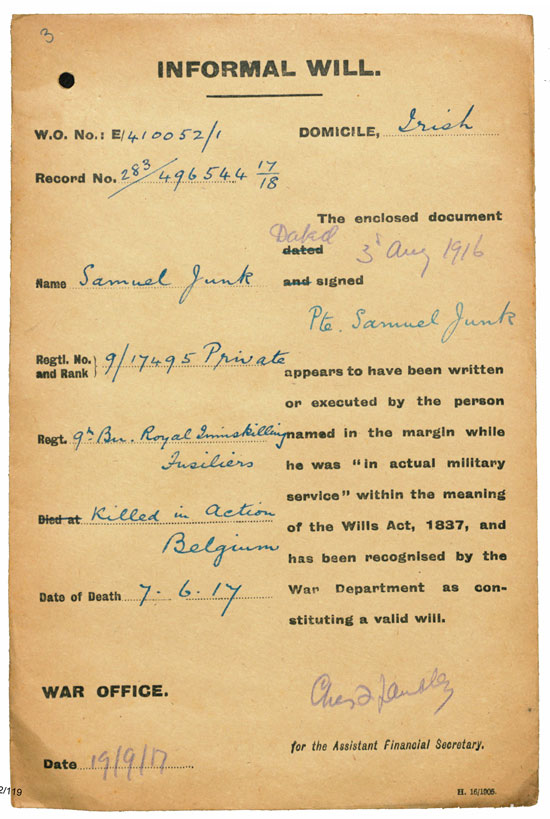 3
INFORMAL WILL.
W.O. No.: E/410052/1
Record No. 283/496544 17/18
Name Samuel Junk
Regtl. No. and Rank } 9/17495 Private
Regt. 9th Bn. Royal Inniskilling
Fusiliers
Died at Killed in Action
Belgium
Date of Death 7.6.17
WAR OFFICE.
Date 19/9/17
DOMICILE, Irish
The enclosed document
Dated
dated 3d Aug 1916
and signed
Pte. Samuel Junk
appears to have been written
or executed by the person
named in the margin while
he was "in actual military
service" within the meaning
of the Wills Act, 1837, and
has been recognised by the
War Department as con-
stituting a valid will.
for the Assistant Financial Secretary.
2/119
H. 16/1005.